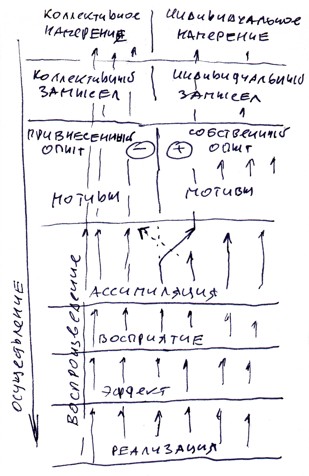 КОЛЛЕКТИВНОЕ
НАМЕРЕНИЕ
ИНДИВИДУАЛЬНОЕ
НАМЕРЕНИЕ
КОЛЛЕКТИВНЫЙ
ЗАМЫСЕЛ
ИНДИВИДУАЛЬНЫЙ
ЗАМЫСЕЛ
ПРИВНЕСЕННЫЙ
ОПЫТ
СОБСТВЕННЫЙ
ОПЫТ
− +
МОТИВЫ
МОТИВЫ
АССИМИЛЯЦИЯ
ВОСПРИЯТИЕ
ЭФФЕКТ
РЕАЛИЗАЦИЯ
ОСУЩЕСТВЛЕНИЕ
ВОСПРОИЗВЕДЕНИЕ